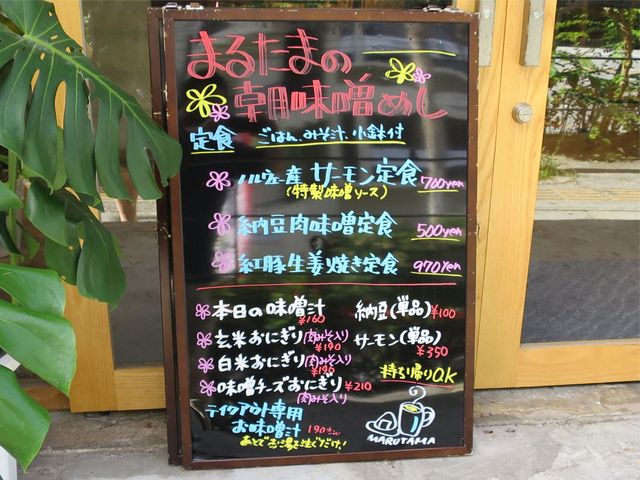 まるたまの
朝味噌めし
定食 ごはん、みそ汁、小鉢付
ノルウェー産 サーモン定食 700yen
(特製味噌ソース)
納豆肉味噌定食 500yen
紅豚生姜焼き定食 970yen
本日の味噌汁 ¥160
玄米おにぎり(肉みそ入り) ¥190
白米おにぎり(肉みそ入り) ¥190
味噌チーズおにぎり ¥210
肉みそ入り
テイクアウト専用
お味噌汁 190yen
あとでお湯を注ぐだけ!
納豆(単品) ¥100
サーモン(単品)
¥350
持ち帰りOK
MARUTAMA